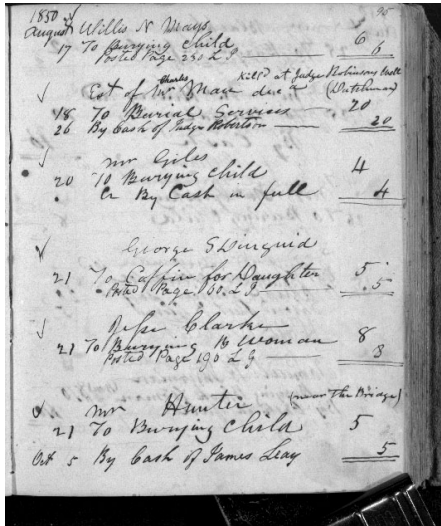 1850 95
August Willis N Mays
17 To Burying Child 6
Posted Page 230 L J 6
Charles Kill'd at Judge Robinsons Well
Est of Mr dec'd (Dutchman)
18 To Burial Services 20
26 By Cash of Judge Robertson 20
Mr Giles
20 To Burying Child 4
Cr By Cash in full 4
George S Diuguid
21 To Coffin for Daughter 5
Posted Page 60 L J 5
Jesse Clarke
21 To Burying B Woman 8
Posted Page 190 L J 8
Mr Hunter (near the Bridge)
21 To Burying Child 5
Oct 5 By Cash of James Leay 5